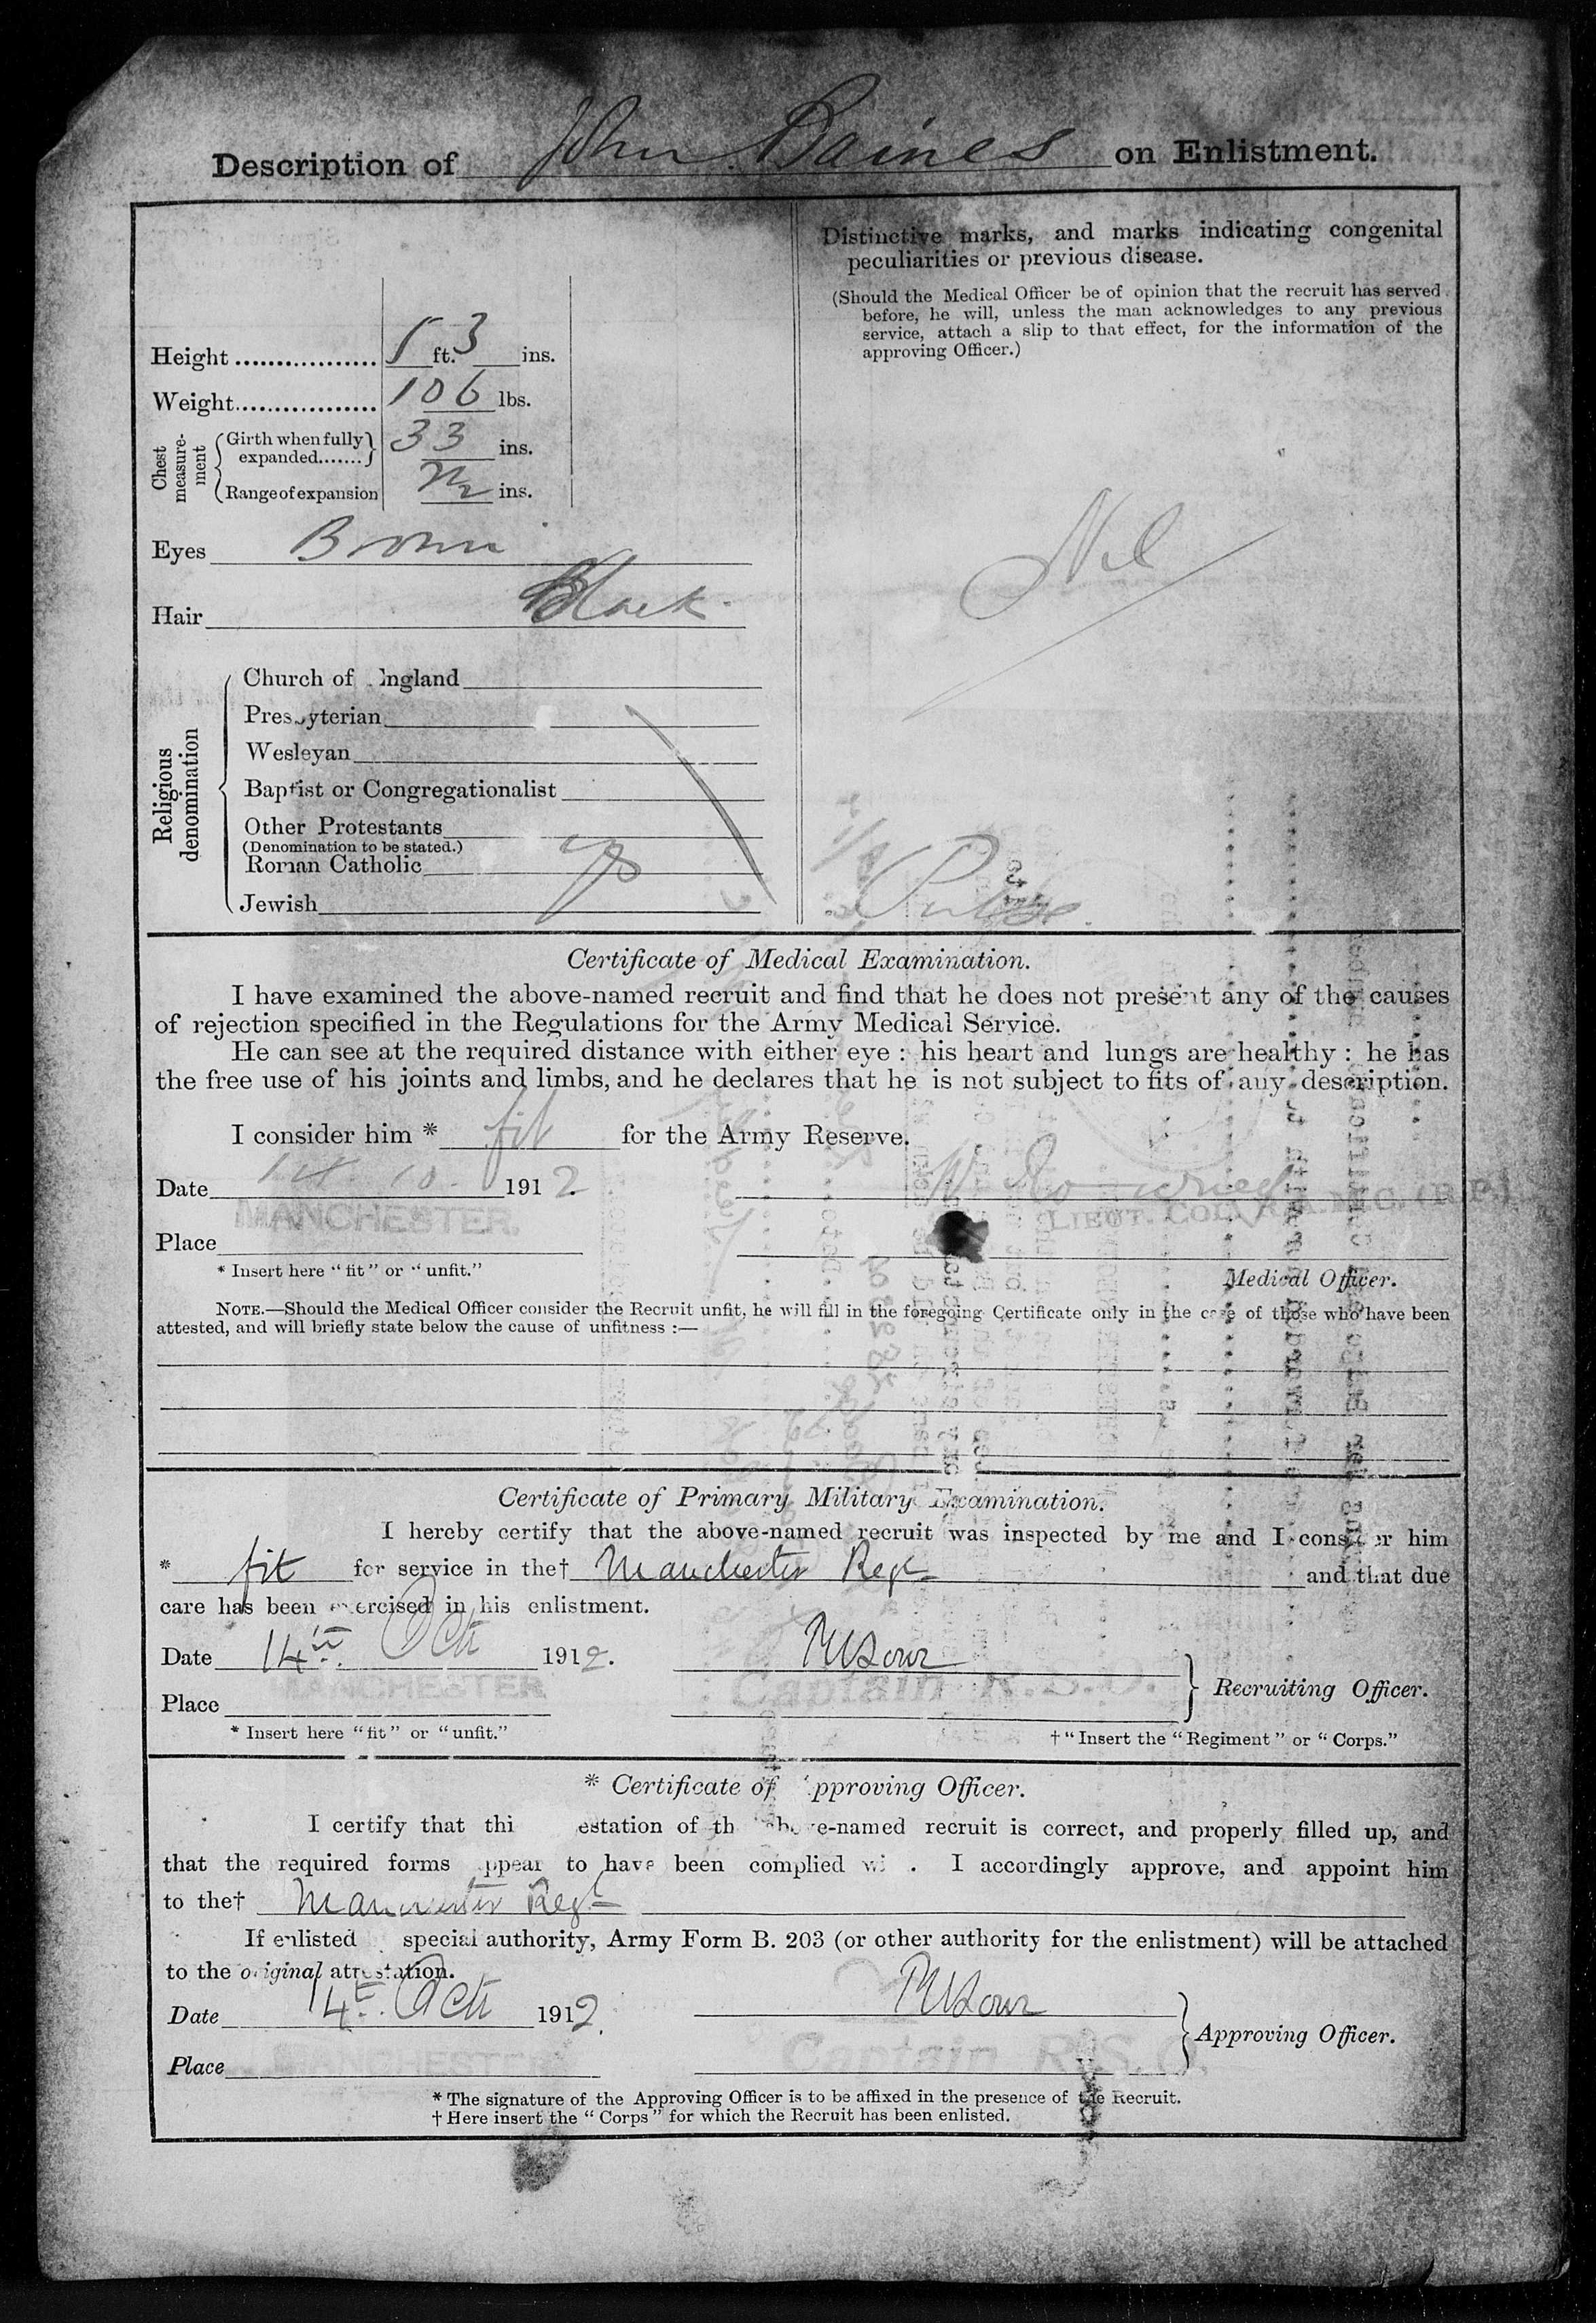 Description of John Baines on Enlistment.
Distinctive marks, and marks indicating congenital
peculiarities or previous disease.
(Should the Medical Officer be of opinion that the recruit has served
before, he will, unless the man acknowledges to any previous
service, attach a slip to that effect, for the information of the
approving Officer.)
Height 5 ft. 3 ins.
Weight 106 lbs.
Chest measure-ment
Girth when fully expanded 33 ins.
Range of expansion ins.
Eyes Brown
Hair Black
Nil
Religious denomination
Church of England
Presbyterian
Wesleyan
Baptist or Congregationalist
Other Protestants
(Denomination to be stated.)
Roman Catholic
Jewish
Certificate of Medical Examination.
I have examined the above-named recruit and find that he does not present any of the causes
of rejection specified in the Regulations for the Army Medical Service.
He can see at the required distance with either eye : his heart and lungs are healthy : he has
the free use of his joints and limbs, and he declares that he is not subject to fits of any description.
I consider him * fit for the Army Reserve.
Date 14. 10. 1912.
MANCHESTER.
LIEUT. COL. R.A.M.C. (R.P.)
Place
* Insert here "fit" or "unfit."
Medical Officer.
NOTE.—Should the Medical Officer consider the Recruit unfit, he will fill in the foregoing Certificate only in the case of those who have been
attested, and will briefly state below the cause of unfitness :—
Certificate of Primary Military Examination.
I hereby certify that the above-named recruit was inspected by me and I consider him
* fit for service in the† Manchester Regt and that due
care has been exercised in his enlistment.
Date 14th. Oct 1912.
MANCHESTER
Captain R.S.O.
Place
Recruiting Officer.
* Insert here "fit" or "unfit."
† "Insert the "Regiment" or "Corps."
* Certificate of Approving Officer.
I certify that thi estation of th above-named recruit is correct, and properly filled up, and
that the required forms appear to have been complied wi . I accordingly approve, and appoint him
to the† Manchester Regt
If enlisted special authority, Army Form B. 203 (or other authority for the enlistment) will be attached
to the original attestation.
Date 14th. Oct 1912.
Approving Officer.
MANCHESTER
Captain R.S.O.
Place
* The signature of the Approving Officer is to be affixed in the presence of the Recruit.
† Here insert the "Corps" for which the Recruit has been enlisted.